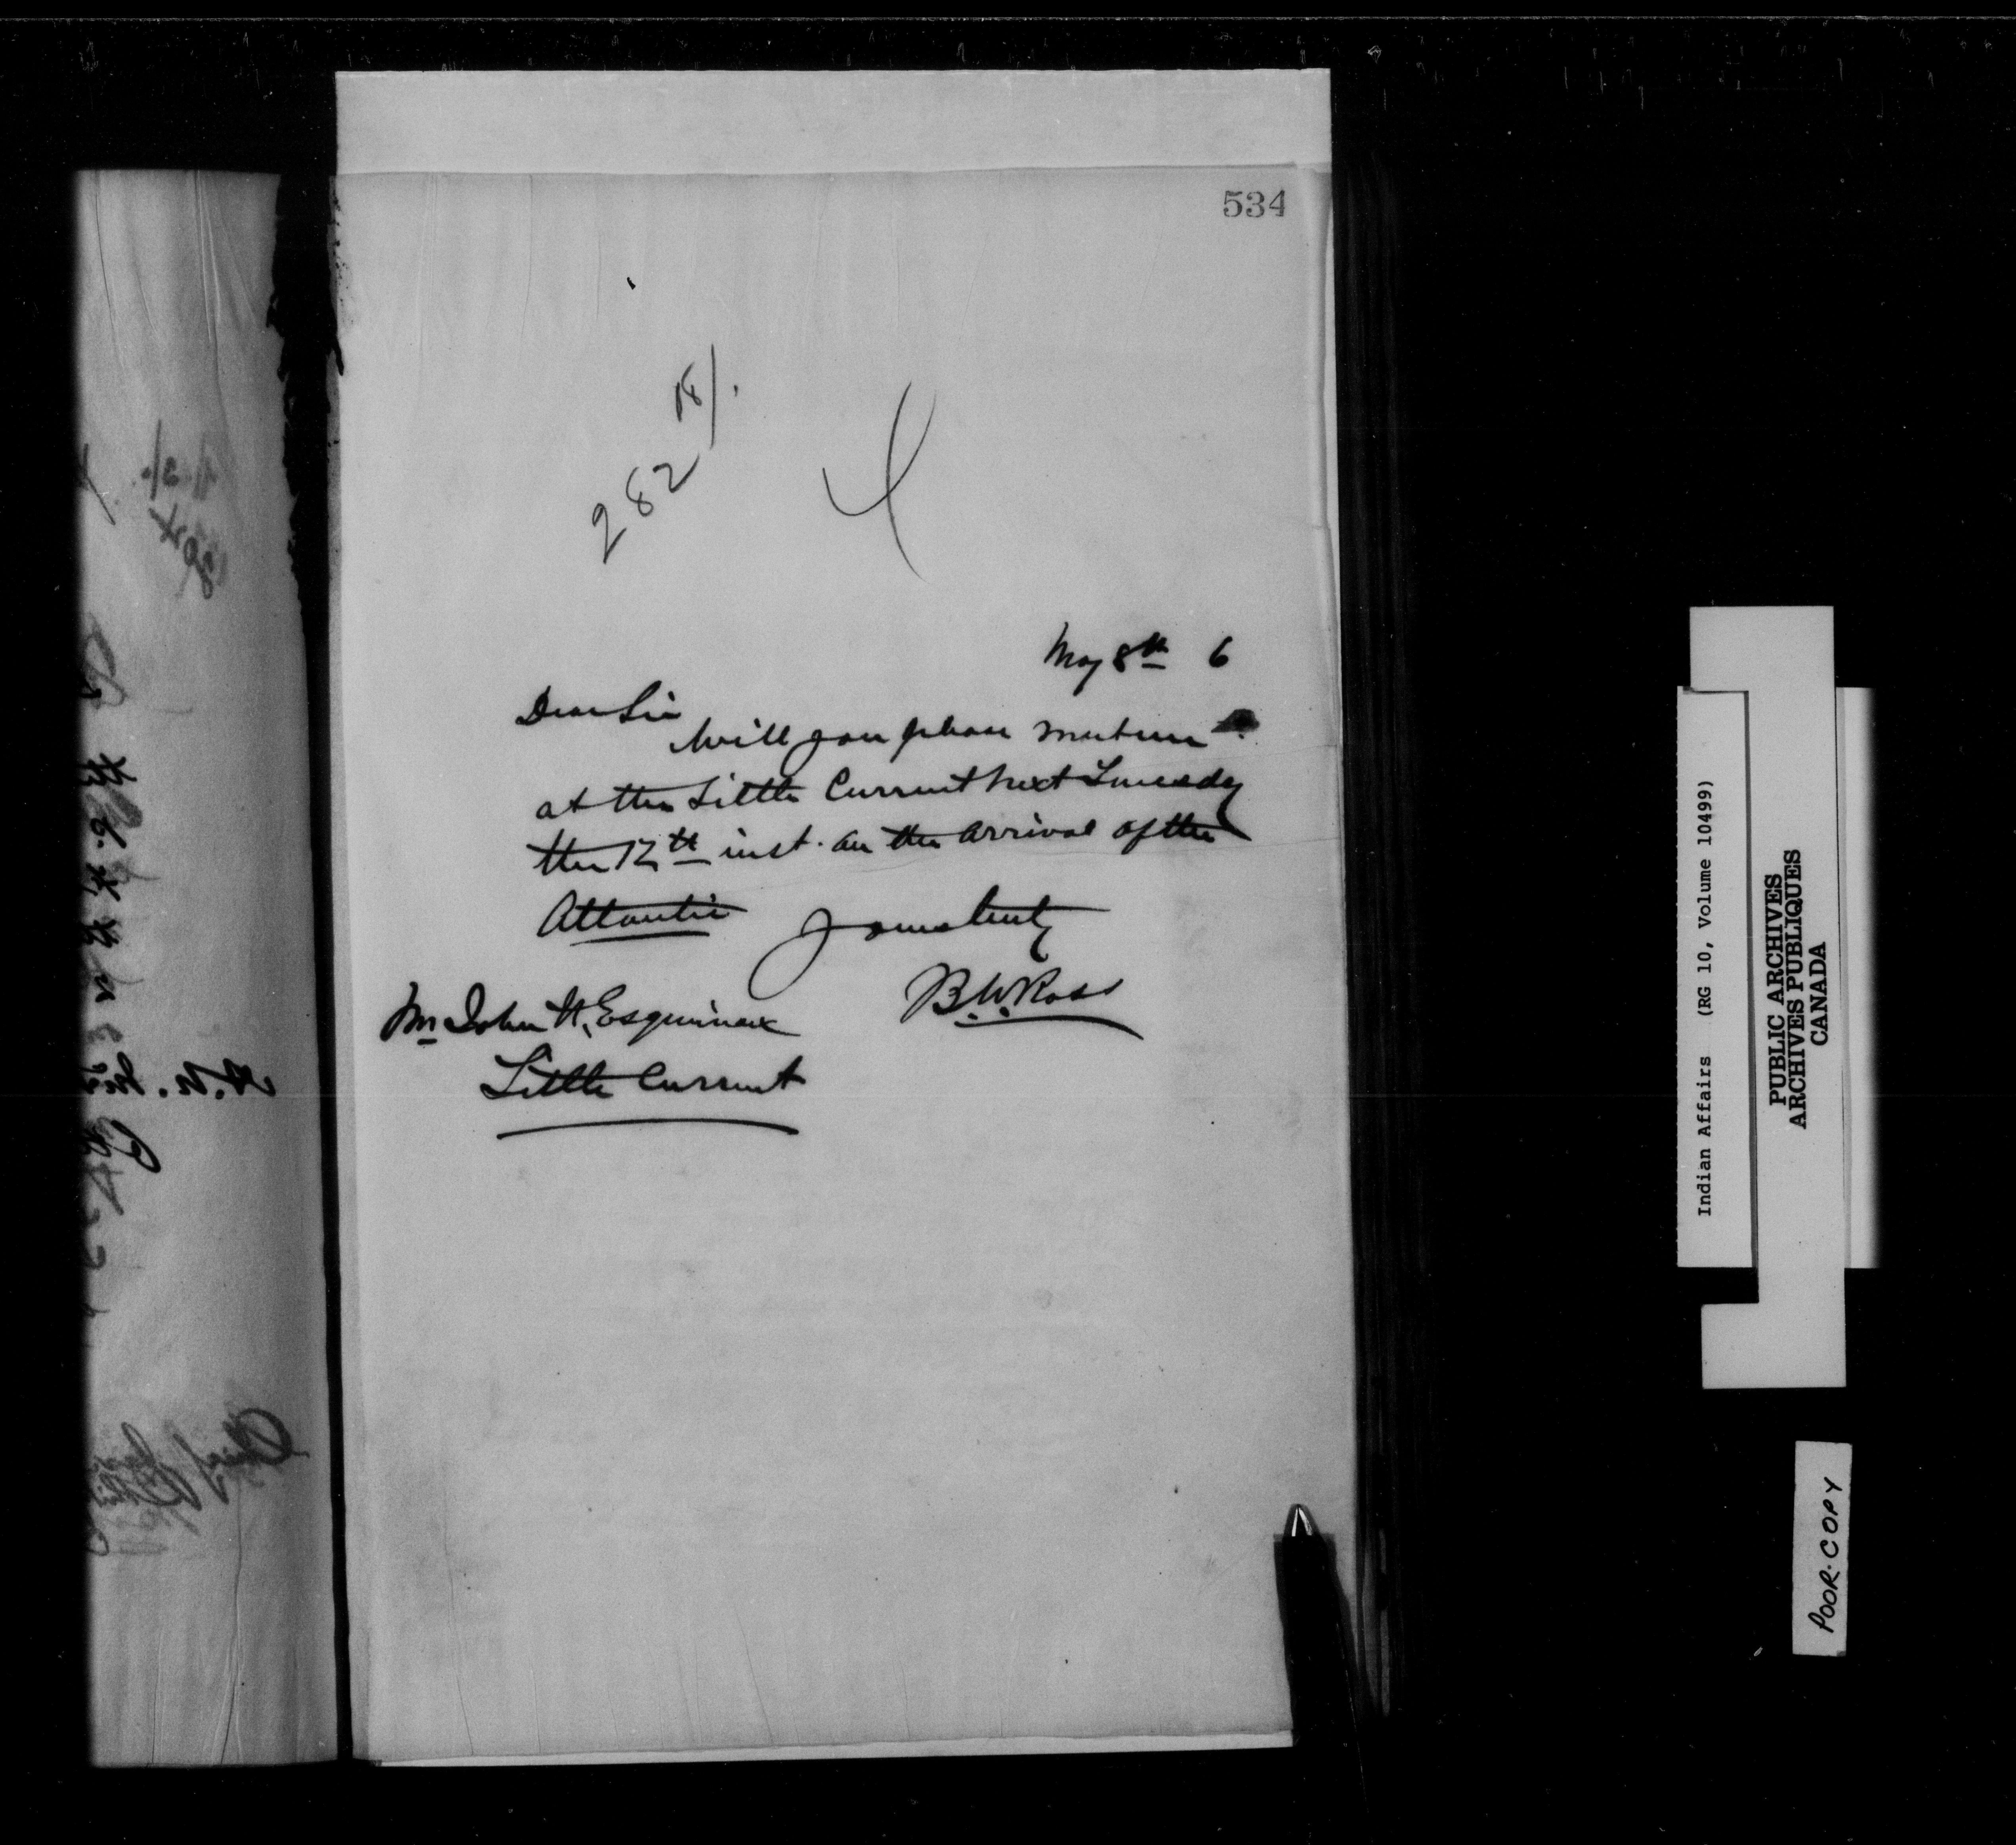 534
282
May 8th 6
Dear Sir
Will you please meet me
at the Little Current next Tuesday
the 12th inst. on the arrival of the
Atlantic Yours truly
B.W. Ross
Mr John H. Esquimaux
Little Current
Indian Affairs (RG 10, Volume 10499)
PUBLIC ARCHIVES
ARCHIVES PUBLIQUES
CANADA
POOR COPY